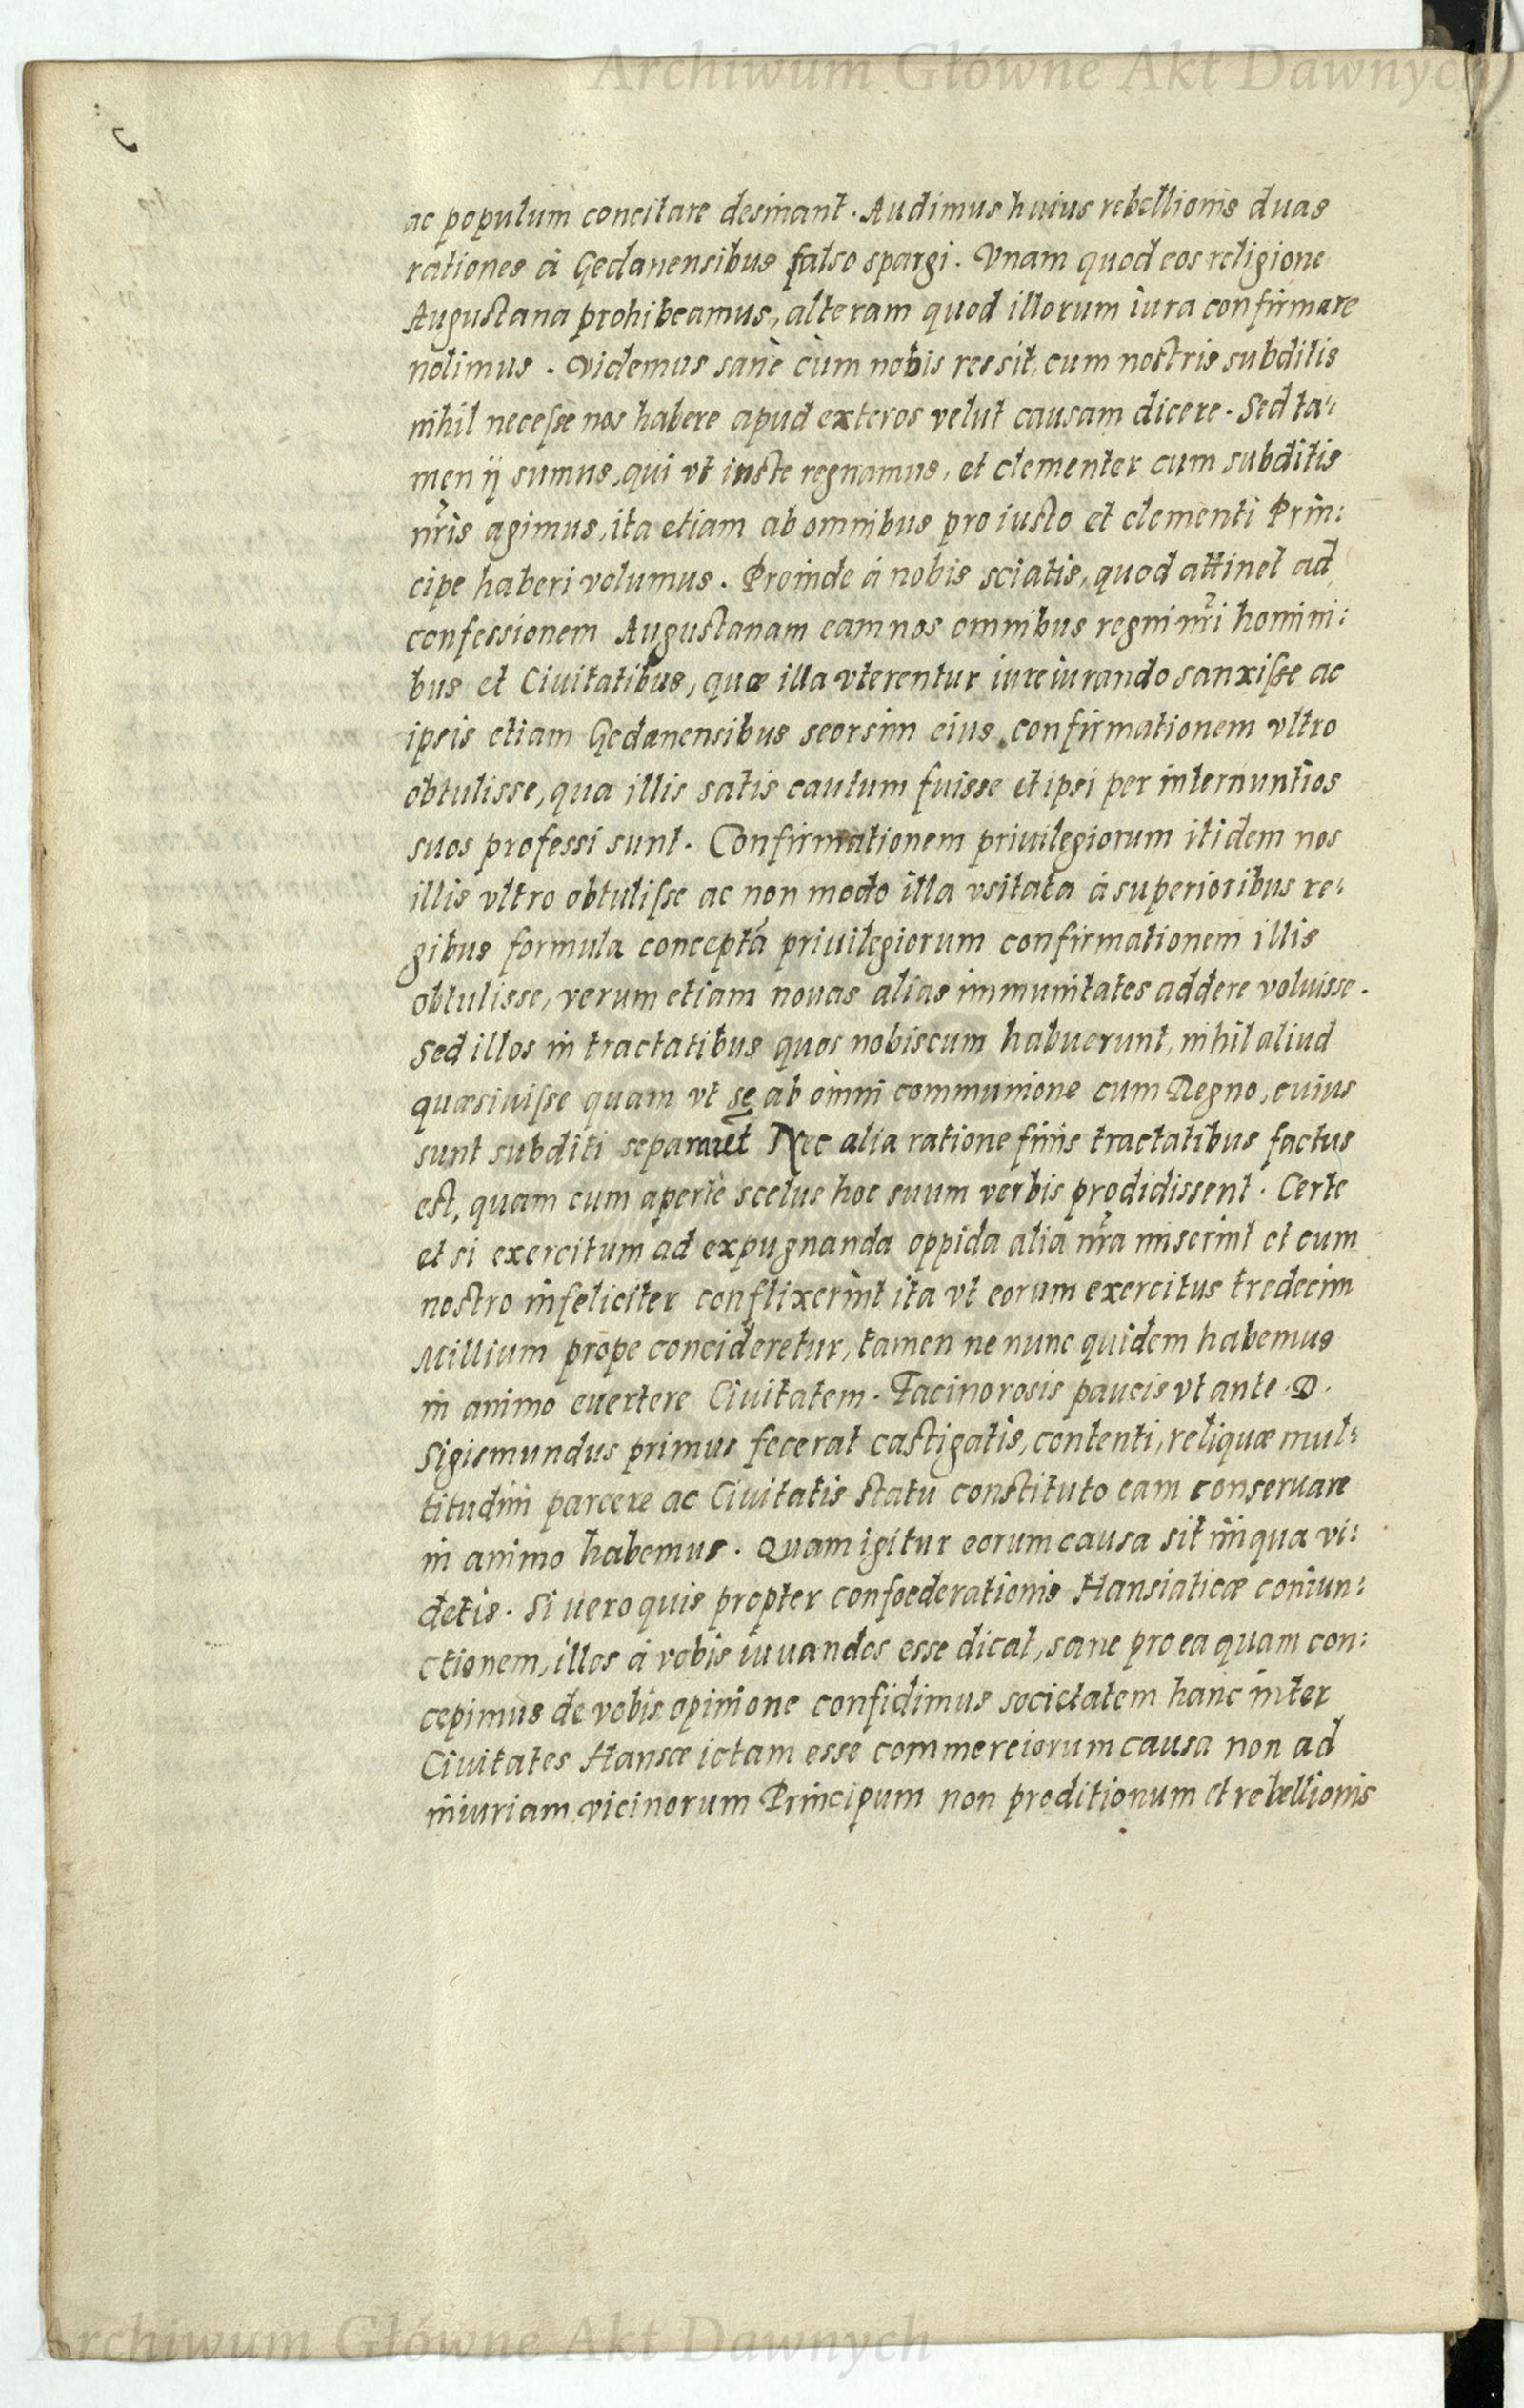 Archiwum Główne Akt Dawnych
ac populum concitare desinant. Audimus huius rebellionis duas
rationes à Gedanensibus falso spargi. Vnam quod eos religione
Augustana prohibeamus, alteram quod illorum iura confirmare
nolimus. Videmus sanè cùm nobis res sit, cum nostris subditis
nihil necesse nos habere apud exteros velut causam dicere. Sed ta:
men ij sumus, qui vt iuste regnamus, et clementer cum subditis
nr̃is agimus, ita etiam ab omnibus pro iusto et clementi Prin:
cipe haberi volumus. Proinde à nobis sciatis, quod attinet ad
confessionem Augustanam eam nos omnibus regni nr̃i homini:
bus et Ciuitatibus, quæ illa vterentur iureiurando sanxisse ac
ipsis etiam Gedanensibus seorsim eius confirmationem vltro
obtulisse, qua illis satis cautum fuisse et ipsi per internuntios
suos professi sunt. Confirmationem priuilegiorum itidem nos
illis vltro obtulisse ac non modo illa vsitata à superioribus re:
gibus formula concepta priuilegiorum confirmationem illis
obtulisse, verum etiam nouas alias immunitates addere voluisse.
Sed illos in tractatibus quos nobiscum habuerunt, nihil aliud
quæsiuisse quam vt se ab omni communione cum Regno, cuius
sunt subditi separarēt Nec alia ratione finis tractatibus factus
est, quam cum apertè scelus hoc suum verbis prodidissent. Certe
et si exercitum ad expugnanda oppida alia nr̃a miserint et cum
nostro infeliciter conflixerint ita vt eorum exercitus tredecim
Millium prope concideretur, tamen ne nunc quidem habemus
in animo euertere Ciuitatem. Facinorosis paucis vt ante D.
Sigismundus primus fecerat castigatis, contenti, reliquæ mul:
titudini parcere ac Ciuitatis statu constituto eam conseruare
in animo habemus. Quam igitur eorum causa sit iniqua vi:
detis. Si uero quis propter confoederationis Hansiaticæ coniun:
ctionem, illos à vobis iuuandos esse dicat, sane pro ea quam con:
cepimus de vobis opinione confidimus societatem hanc inter
Ciuitates Hansæ ictam esse commerciorum causa non ad
iniuriam vicinorum Principum non proditionum et rebellionis
Archiwum Główne Akt Dawnych